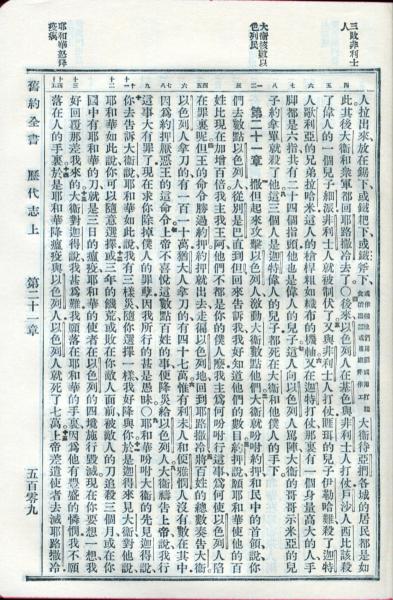 三敗非利士人
大衛核數以色列民
耶和華怒降疫病
人拉出來放在鋸下或鐵耙下或鐵斧下大衛待亞捫各城的居民都是如
此其後大衛和衆軍都回耶路撒冷去了○後來以色列人在基色與非利士人打仗戶沙人西比該殺
了偉人的一個兒子細派非利士人就被制伏了又與非利士人打仗睚珥的兒子伊勒哈難殺了迦特
人歌利亞的兄弟拉哈米這人的槍桿粗如織布的機軸又在迦特打仗那裏有一個身量高大的人手
脚都是六指共有二十四個指頭他也是偉人的兒子這人向以色列人罵陣大衛的哥哥示米亞的兒
子約拿單就殺了他這三個人是迦特偉人的兒子都死在大衛和他僕人的手下
第二十一章 撒但起來攻擊以色列人激動大衛數點他們大衛就吩咐約押和民中的首領說你
們去數點以色列人從別是巴直到但回來告訴我我好知道他們的數目約押說願耶和華使他的百
姓比現在加增百倍我主我王阿他們不都是你的僕人麽我主爲何吩咐行這事爲何使以色列人陷
在罪裏呢但王的命令勝過約押約押就出去走徧以色列地回到耶路撒冷將百姓的總數奏告大衛
以色列人拿刀的有一百一十萬猶大人拿刀的有四十七萬惟有利未人和便雅憫人沒有數在其中
因爲約押厭惡王的這命令上帝不喜悅這數點百姓的事便降災給以色列人大衛禱告上帝說我行
這事大有罪了現在求你除掉僕人的罪孽因我所行的甚是愚昧○耶和華吩咐大衛的先見迦得說
你去告訴大衛說耶和華如此說我有三樣災隨你選擇一樣我好降與你於是迦得來見大衛對他說
耶和華如此說你可以隨意選擇或三年的饑荒或敗在你敵人面前被敵人的刀追殺三個月或在你
國中有耶和華的刀就是三日的瘟疫耶和華的使者在以色列的四境施行毀滅現在你要想一想我
好回覆那差我來的大衛對迦得說我甚爲難我願落在耶和華的手裏因爲他有豐盛的憐憫我不願
落在人的手裏於是耶和華降瘟疫與以色列人以色列人就死了七萬上帝差遣使者去滅耶路撒冷
舊約全書 歷代志上 第二十一章 五百零九